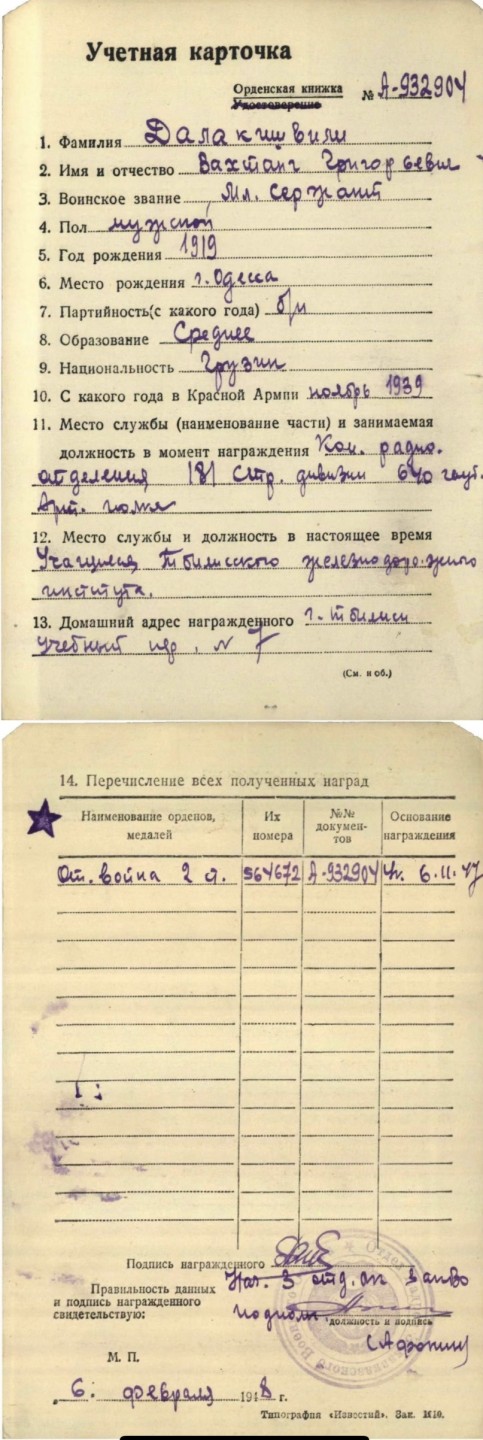 Учетная карточка
Орденская книжка № А-932904
Удостоверение
1. Фамилия Далакишвили
2. Имя и отчество Вахтанг Григорьевич
3. Воинское звание Мл. Сержант
4. Пол мужской
5. Год рождения 1919
6. Место рождения г. Одесса
7. Партийность(с какого года) б/п
8. Образование Среднее
9. Национальность Грузин
10. С какого года в Красной Армии ноябрь 1939
11. Место службы (наименование части) и занимаемая
должность в момент награждения Ком. радио.
отделения 181 Стр. дивизии 640 гауб.
Арт. полка
12. Место службы и должность в настоящее время
Учащийся Тбилисского железнодорожного
института.
13. Домашний адрес награжденного г. Тбилиси
Учебный пер, N 7
(См. н об.)
14. Перечисление всех полученных наград
Наименование орденов, медалей Их номера №№ документов Основание награждения
От. война 2 ст. 564672 А-932904 Ук. 6.11.47
Подпись награжденного
Правильность данных Нач. 3 отд. ок ЗакВО
и подпись награжденного
свидетельствую: подполк.
должность и подпись
М. П.
„6" февраля 1948 г.
Типография «Известий». Зак. 1610.